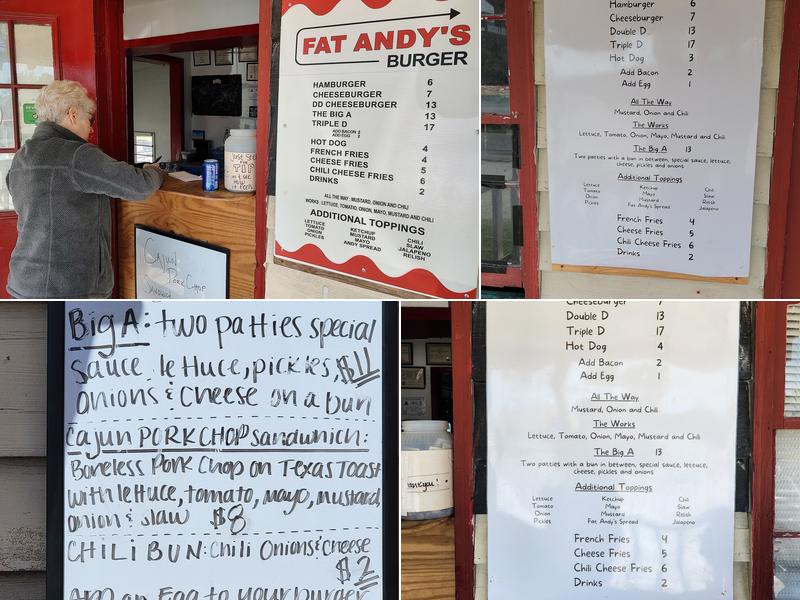 FAT ANDY'S
BURGER
HAMBURGER 6
CHEESEBURGER 7
DD CHEESEBURGER 13
THE BIG A 13
TRIPLE D 17
ADD BACON 2
ADD EGG 2
HOT DOG 4
FRENCH FRIES 4
CHEESE FRIES 5
CHILI CHEESE FRIES 6
DRINKS 2
ALL THE WAY: MUSTARD, ONION AND CHILI
WORKS: LETTUCE, TOMATO, ONION, MAYO, MUSTARD AND CHILI
ADDITIONAL TOPPINGS
LETTUCE KETCHUP CHILI
TOMATO MUSTARD SLAW
ONION MAYO JALAPENO
PICKLES ANDY SPREAD RELISH
Just Say
TIP
Cajun
Pork Chop
Sandwich
Hamburger 6
Cheeseburger 7
Double D 13
Triple D 17
Hot Dog 3
Add Bacon 2
Add Egg 1
All The Way
Mustard, Onion and Chili
The Works
Lettuce, Tomato, Onion, Mayo, Mustard and Chili
The Big A 13
Two patties with a bun in between, special sauce, lettuce,
cheese, pickles and onions
Additional Toppings
Lettuce Ketchup Chili
Tomato Mayo Slaw
Onion Mustard Relish
Pickles Fat Andy's Spread Jalapeno
French Fries 4
Cheese Fries 5
Chili Cheese Fries 6
Drinks 2
Big A: two patties special
sauce, lettuce, pickles, $11
onions & cheese on a bun
Cajun PORK CHOP sandwich:
Boneless Pork Chop on Texas Toast
with lettuce, tomato, mayo, mustard,
onion & slaw $8
CHILI BUN: Chili Onions & Cheese
$2
Add an Egg to your burger
Thank you!
Cheeseburger 7
Double D 13
Triple D 17
Hot Dog 4
Add Bacon 2
Add Egg 1
All The Way
Mustard, Onion and Chili
The Works
Lettuce, Tomato, Onion, Mayo, Mustard and Chili
The Big A 13
Two patties with a bun in between, special sauce, lettuce,
cheese, pickles and onions
Additional Toppings
Lettuce Ketchup Chili
Tomato Mayo Slaw
Onion Mustard Relish
Pickles Fat Andy's Spread Jalapeno
French Fries 4
Cheese Fries 5
Chili Cheese Fries 6
Drinks 2